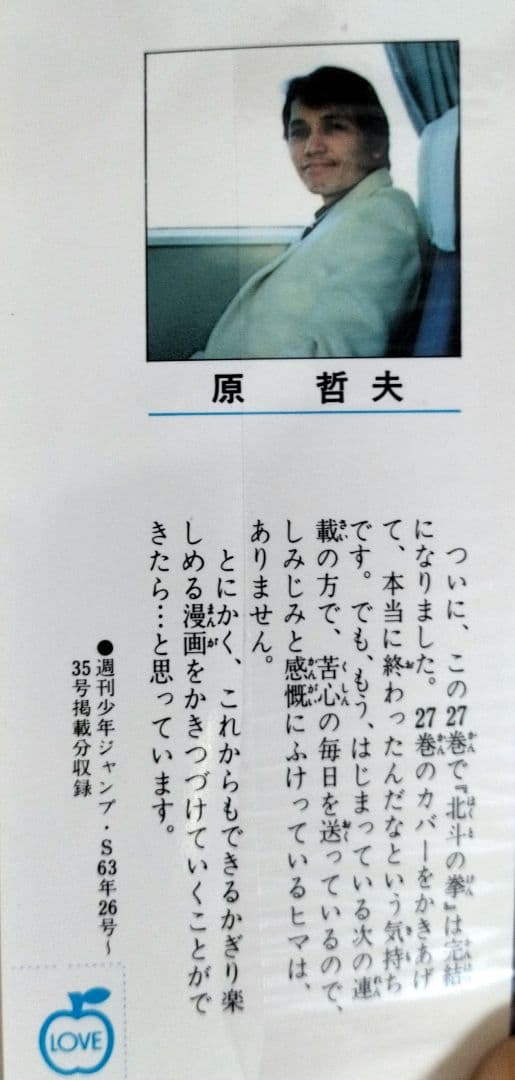 原 哲夫
ついに、この27巻で『北斗の拳』は完結
になりました。27巻のカバーをかきあげ
て、本当に終わったんだなという気持ち
です。でも、もう、はじまっている次の連
載の方で、苦心の毎日を送っているので、
しみじみと感慨にふけっているヒマは、
ありません。
とにかく、これからもできるかぎり楽
しめる漫画をかきつづけていくことがで
きたら…と思っています。
●週刊少年ジャンプ・S63年26号〜
35号掲載分収録
LOVE